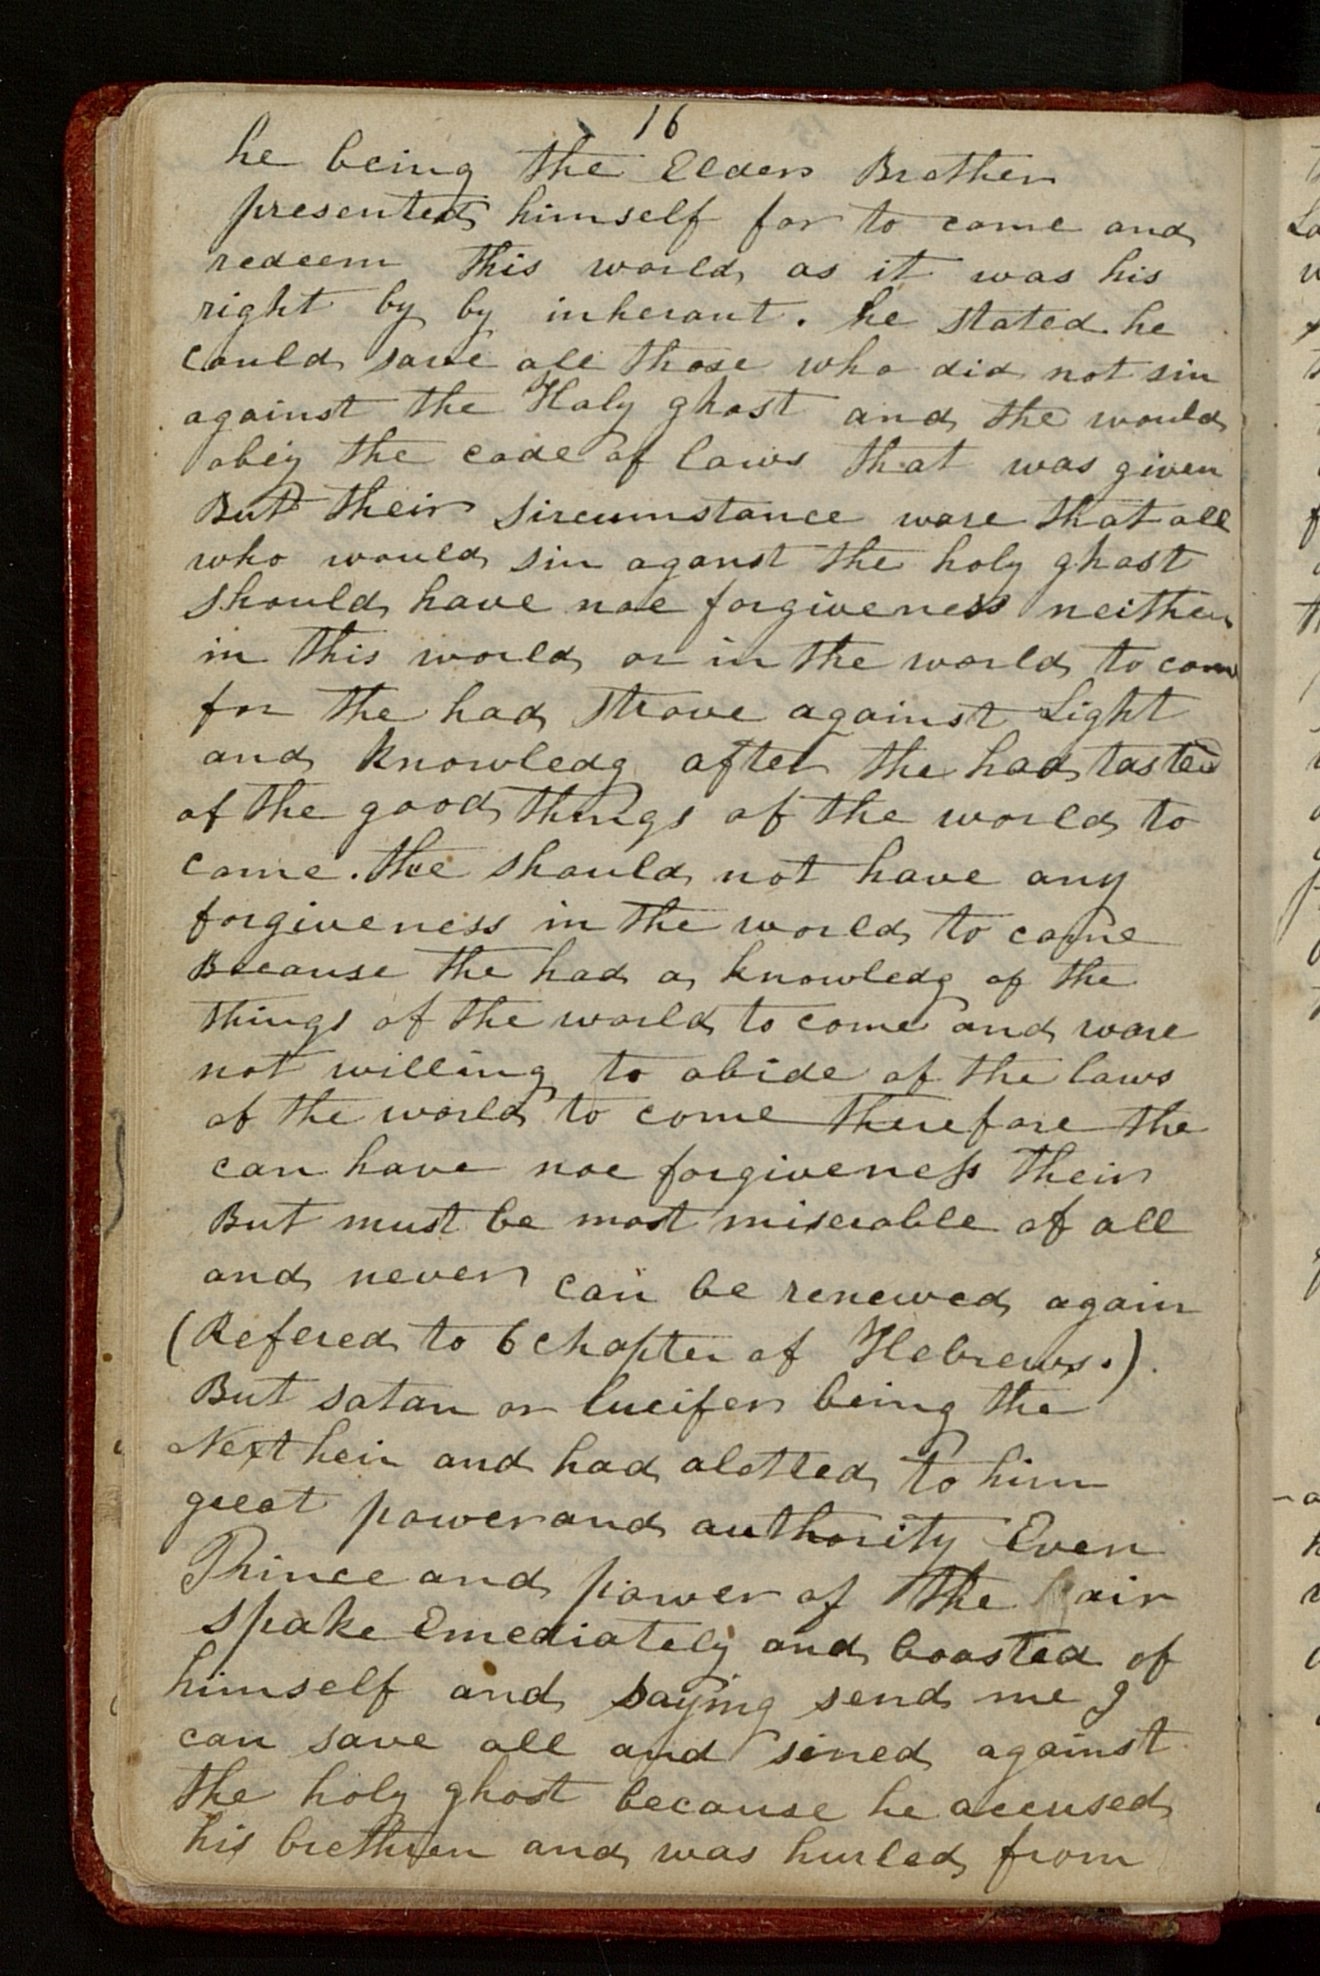 16
he being the Elder Brother
presented himself for to come and
redeem this world as it was his
right by by inherant. he stated he
could save all those who did not sin
against the Holy ghost and the would
obey the code of laws that was given
But their sircumstance ware that all
who would sin aganst the holy ghost
should have noe forgiveness neither
in this world or in the world to come
for the had strove against Light
and knowledg after the had tasted
of the good things of the world to
come. the should not have any
forgiveness in the world to come
Because the had a knowledg of the
things of the world to come and ware
not willing to abide of the laws
of the world to come therefore the
can have noe forgiveness their
But must be most miserable of all
and never can be renewed again
(Refered to 6 chapter of Hebrews.)
But satan or lucifer being the
Next heir and had alotted to him
great power and authority Even
Prince and power of the air
spake Emediately and boasted of
himself and saying send me I
can save all and sined against
the holy ghost because he accused
his brethren and was hurled from